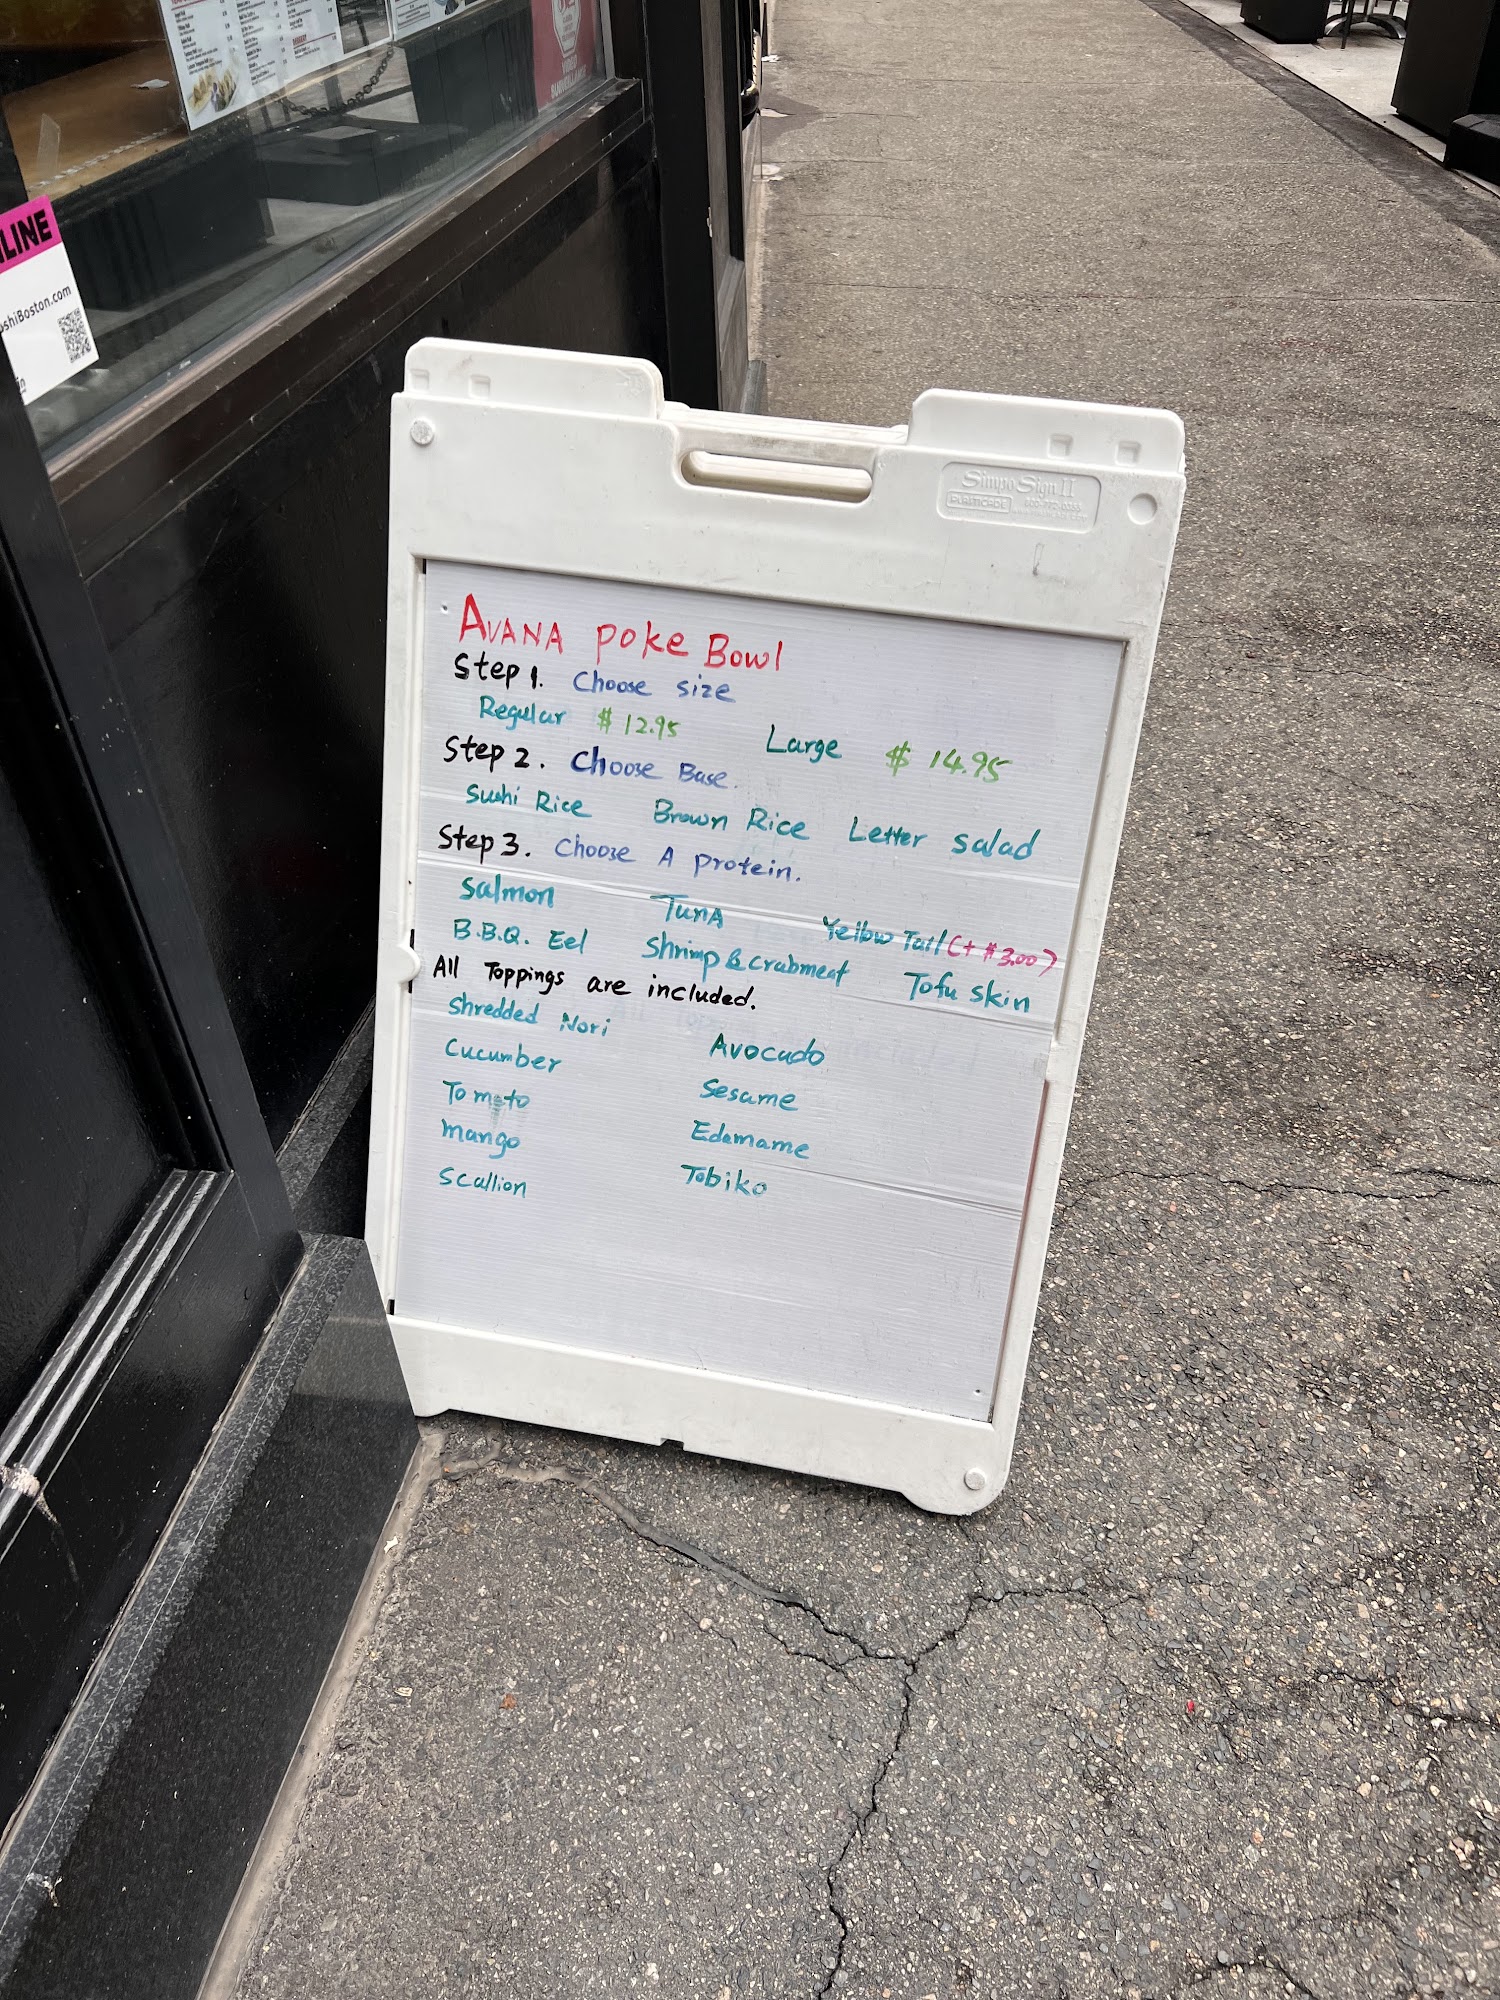 LINE
shiBoston.com
VIDEO
SURVEILLANCE
Simpo Sign II
PLASTICADE
AVANA poke Bowl
Step 1. Choose size
Regular $12.95 Large $14.95
Step 2. Choose Base.
Sushi Rice Brown Rice Letter salad
Step 3. Choose A protein.
Salmon Tuna Yellow Tail (+ $3.00)
B.B.Q. Eel Shrimp & crabmeat Tofu skin
All Toppings are included.
Shredded Nori Avocado
Cucumber Sesame
Tomato Edamame
Mango Tobiko
Scallion